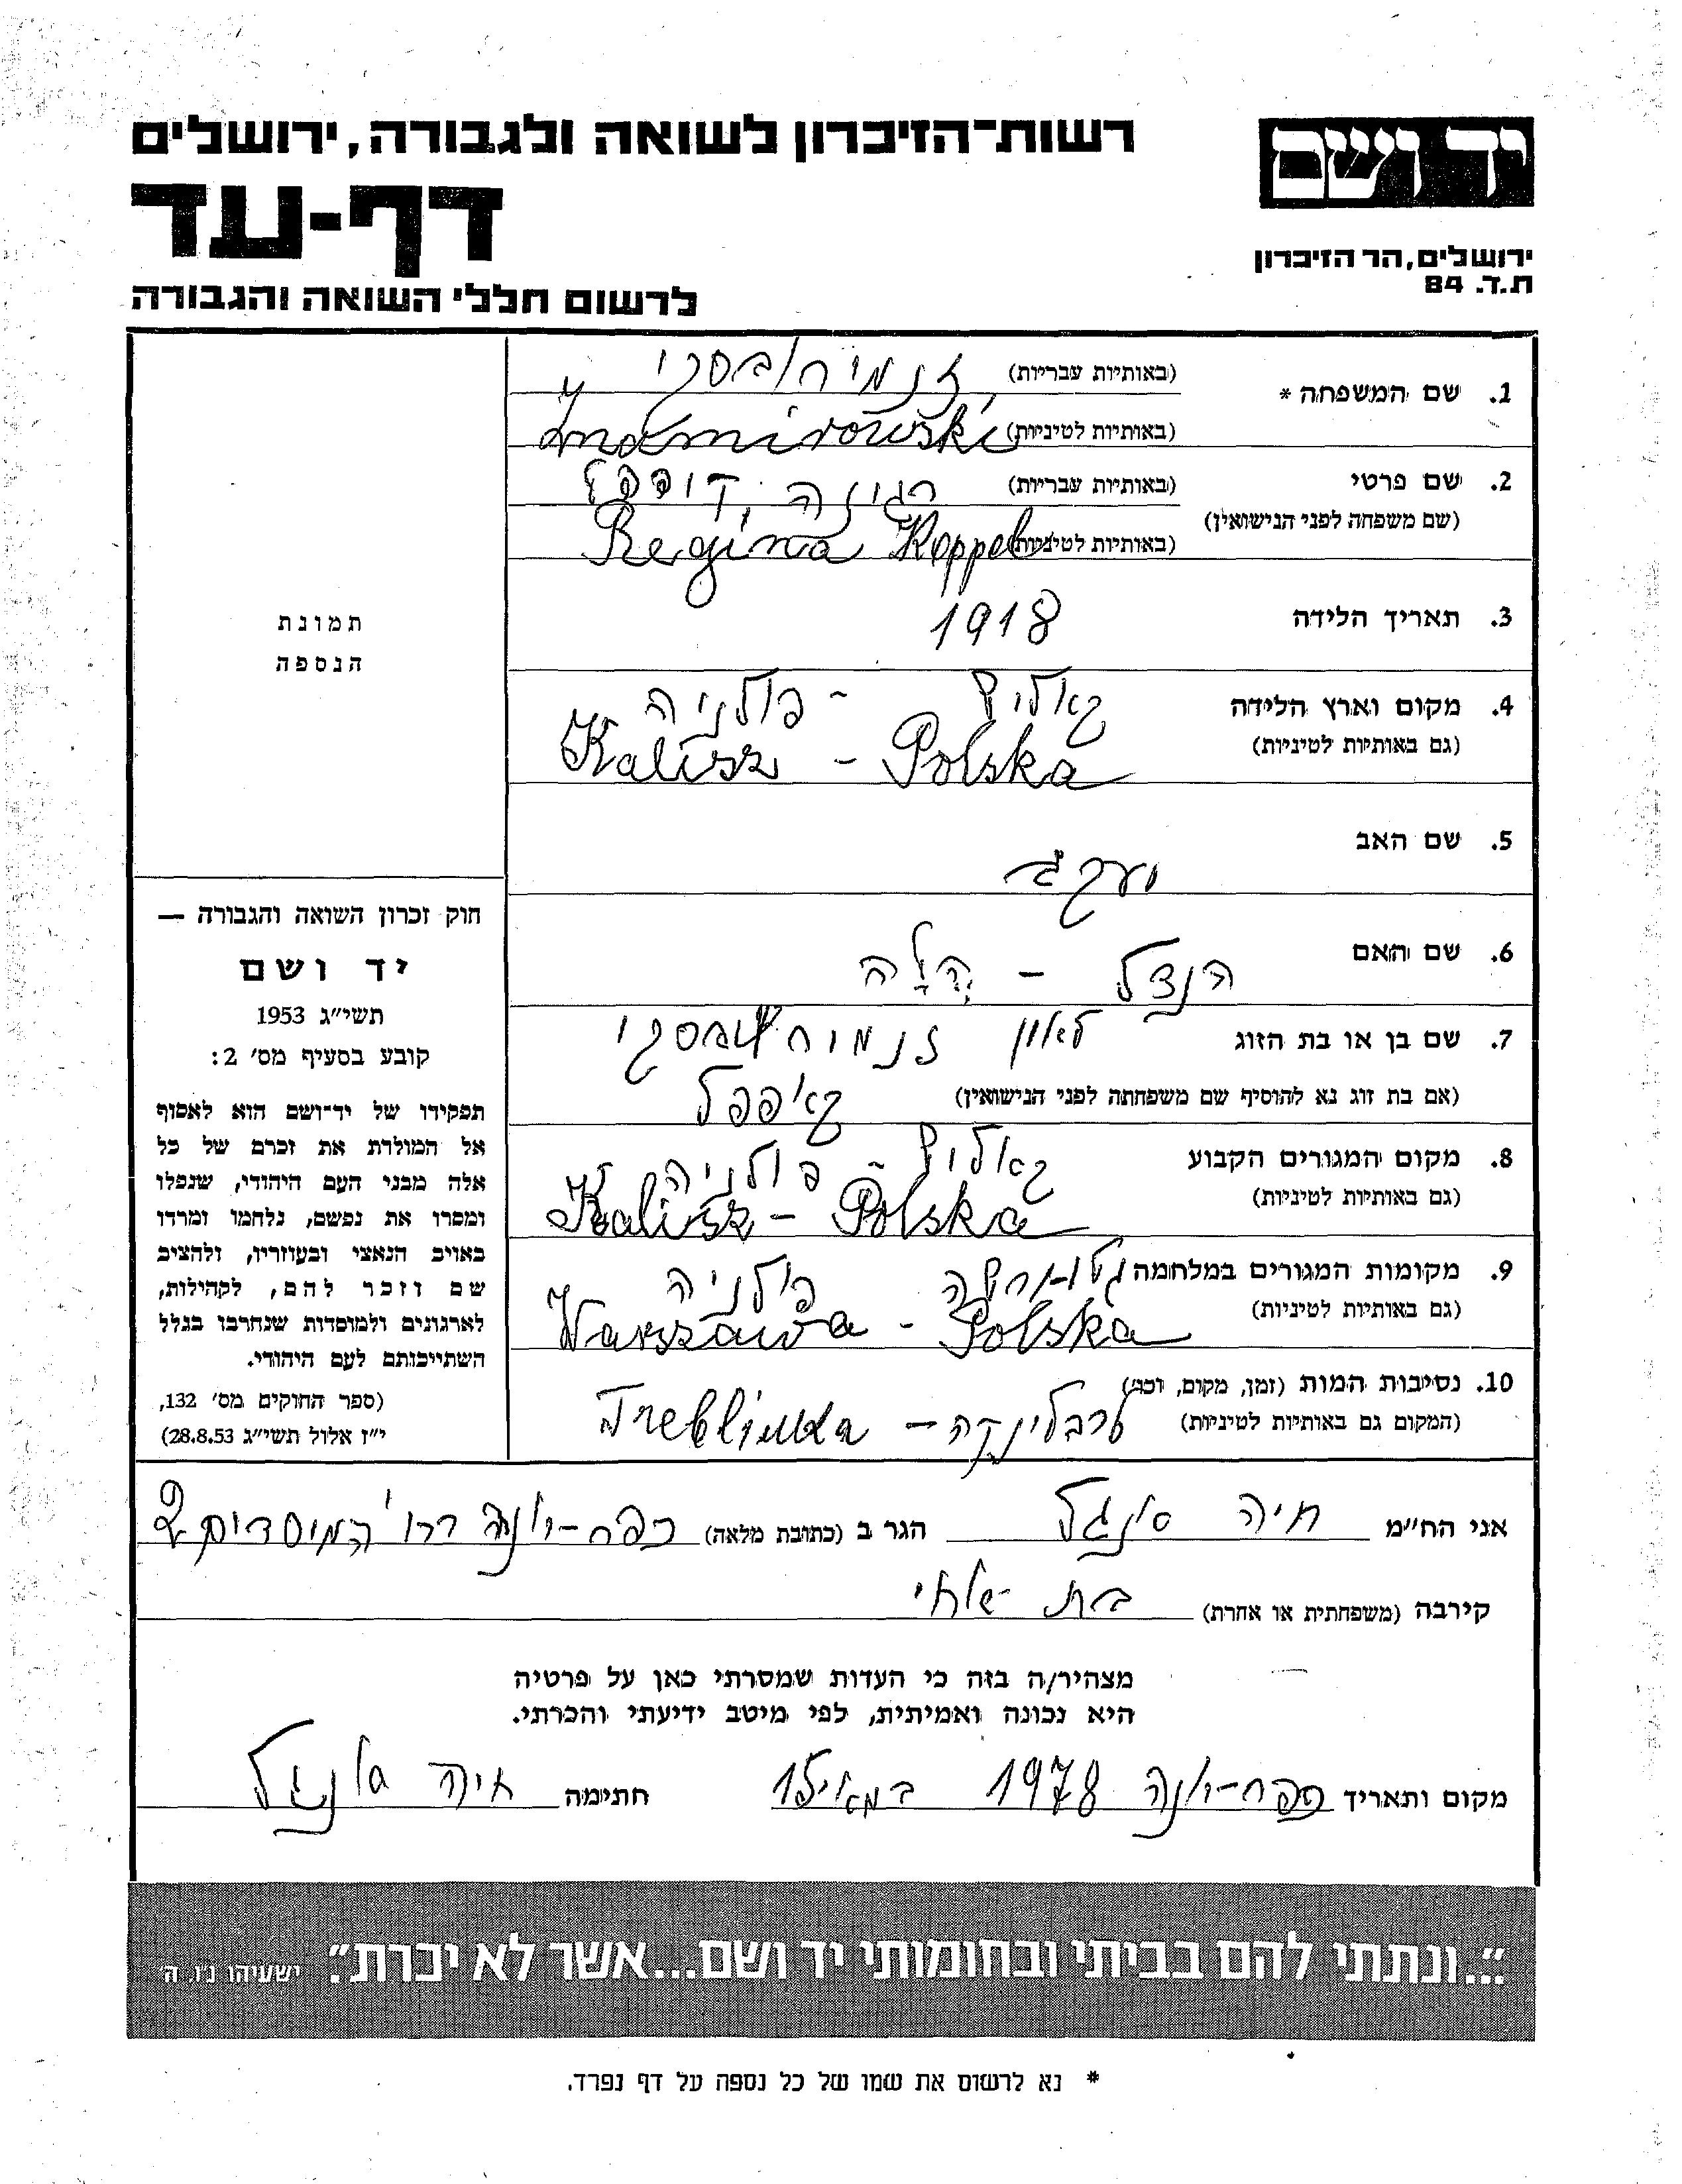 רשות-הזיכרון לשואה ולגבורה, ירושלים
דף-עד
לרשום חללי השואה והגבורה
יד ושם
ירושלים, הר הזיכרון
ת.ד. 84
1. שם המשפחה *
(באותיות עבריות) זנמירובסקי
(באותיות לטיניות) Znamirowski
2. שם פרטי
(שם משפחה לפני הנישואין)
(באותיות עבריות)
(באותיות לטיניות) Regina Koppel
3. תאריך הלידה 1918
4. מקום וארץ הלידה קאליש - פולניה
(גם באותיות לטיניות) Kalisz - Polska
5. שם האב יעקב
6. שם האם הנצל - הלה
7. שם בן או בת הזוג לאון זנמירובסקי
(אם בת זוג נא להוסיף שם משפחתה לפני הנישואין) קאופפל
8. מקום המגורים הקבוע קאליש - פולניה
(גם באותיות לטיניות) Kalisz - Polska
9. מקומות המגורים במלחמה פולניה
(גם באותיות לטיניות) Warszawa - Polska
10. נסיבות המות (זמן, מקום, וכו')
(המקום גם באותיות לטיניות) טרבלינקה - Treblinka
תמונת
הנספה
חוק זכרון השואה והגבורה —
יד ושם
תשי"ג 1953
קובע בסעיף מס' 2:
תפקידו של יד-ושם הוא לאסוף
אל המולדת את זכרם של כל
אלה מבני העם היהודי, שנפלו
ומסרו את נפשם, נלחמו ומרדו
באויב הנאצי ובעוזריו, ולהציב
שם וזכר להם, לקהילות,
לארגונים ולמוסדות שנחרבו בגלל
השתייכותם לעם היהודי.
(ספר החוקים מס' 132,
י"ז אלול תשי"ג 28.8.53)
אני הח"מ חיה סונגל הגר ב (כתובת מלאה) כפר-יונה רח' המיסדים 2
קירבה (משפחתית או אחרת) בת
מצהיר/ה בזה כי העדות שמסרתי כאן על פרטיה
היא נכונה ואמיתית, לפי מיטב ידיעתי והכרתי.
מקום ותאריך כפר-יונה 1978 במאי 15 חתימה חיה סונגל
"...ונתתי להם בביתי ובחומותי יד ושם...אשר לא יכרת". ישעיהו נ"ו, ה'
* נא לרשום את שמו של כל נספה על דף נפרד.